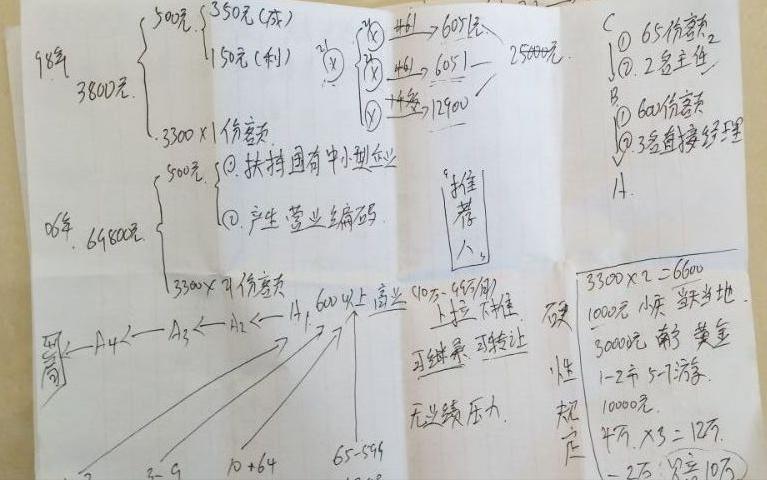 98年
3800元
500元
350元(成)
150元(利)
3300×1份额
21
(X)
21
(X) +61 → 6051元
21
(X) +61 → 6051
(X) → 12900
25000元
C
① 65份额
② 2名主任
B
① 600份额
② 3名直接经理
A
06年 69800元
500元
① 扶持国有中小型企业
② 产生营业编码
3300×21份额
"推荐人"
出局 ← A4 ← A3 ← A2 ← A1 600以上 高业
上拉下推
可继承 可转让
无业绩压力
3-9
10+64
65-599
硬性规定
3300×2=6600
1000元
3000元 黄金
1-2市 5-7
10000元
4万×3=12万
-2万
10万